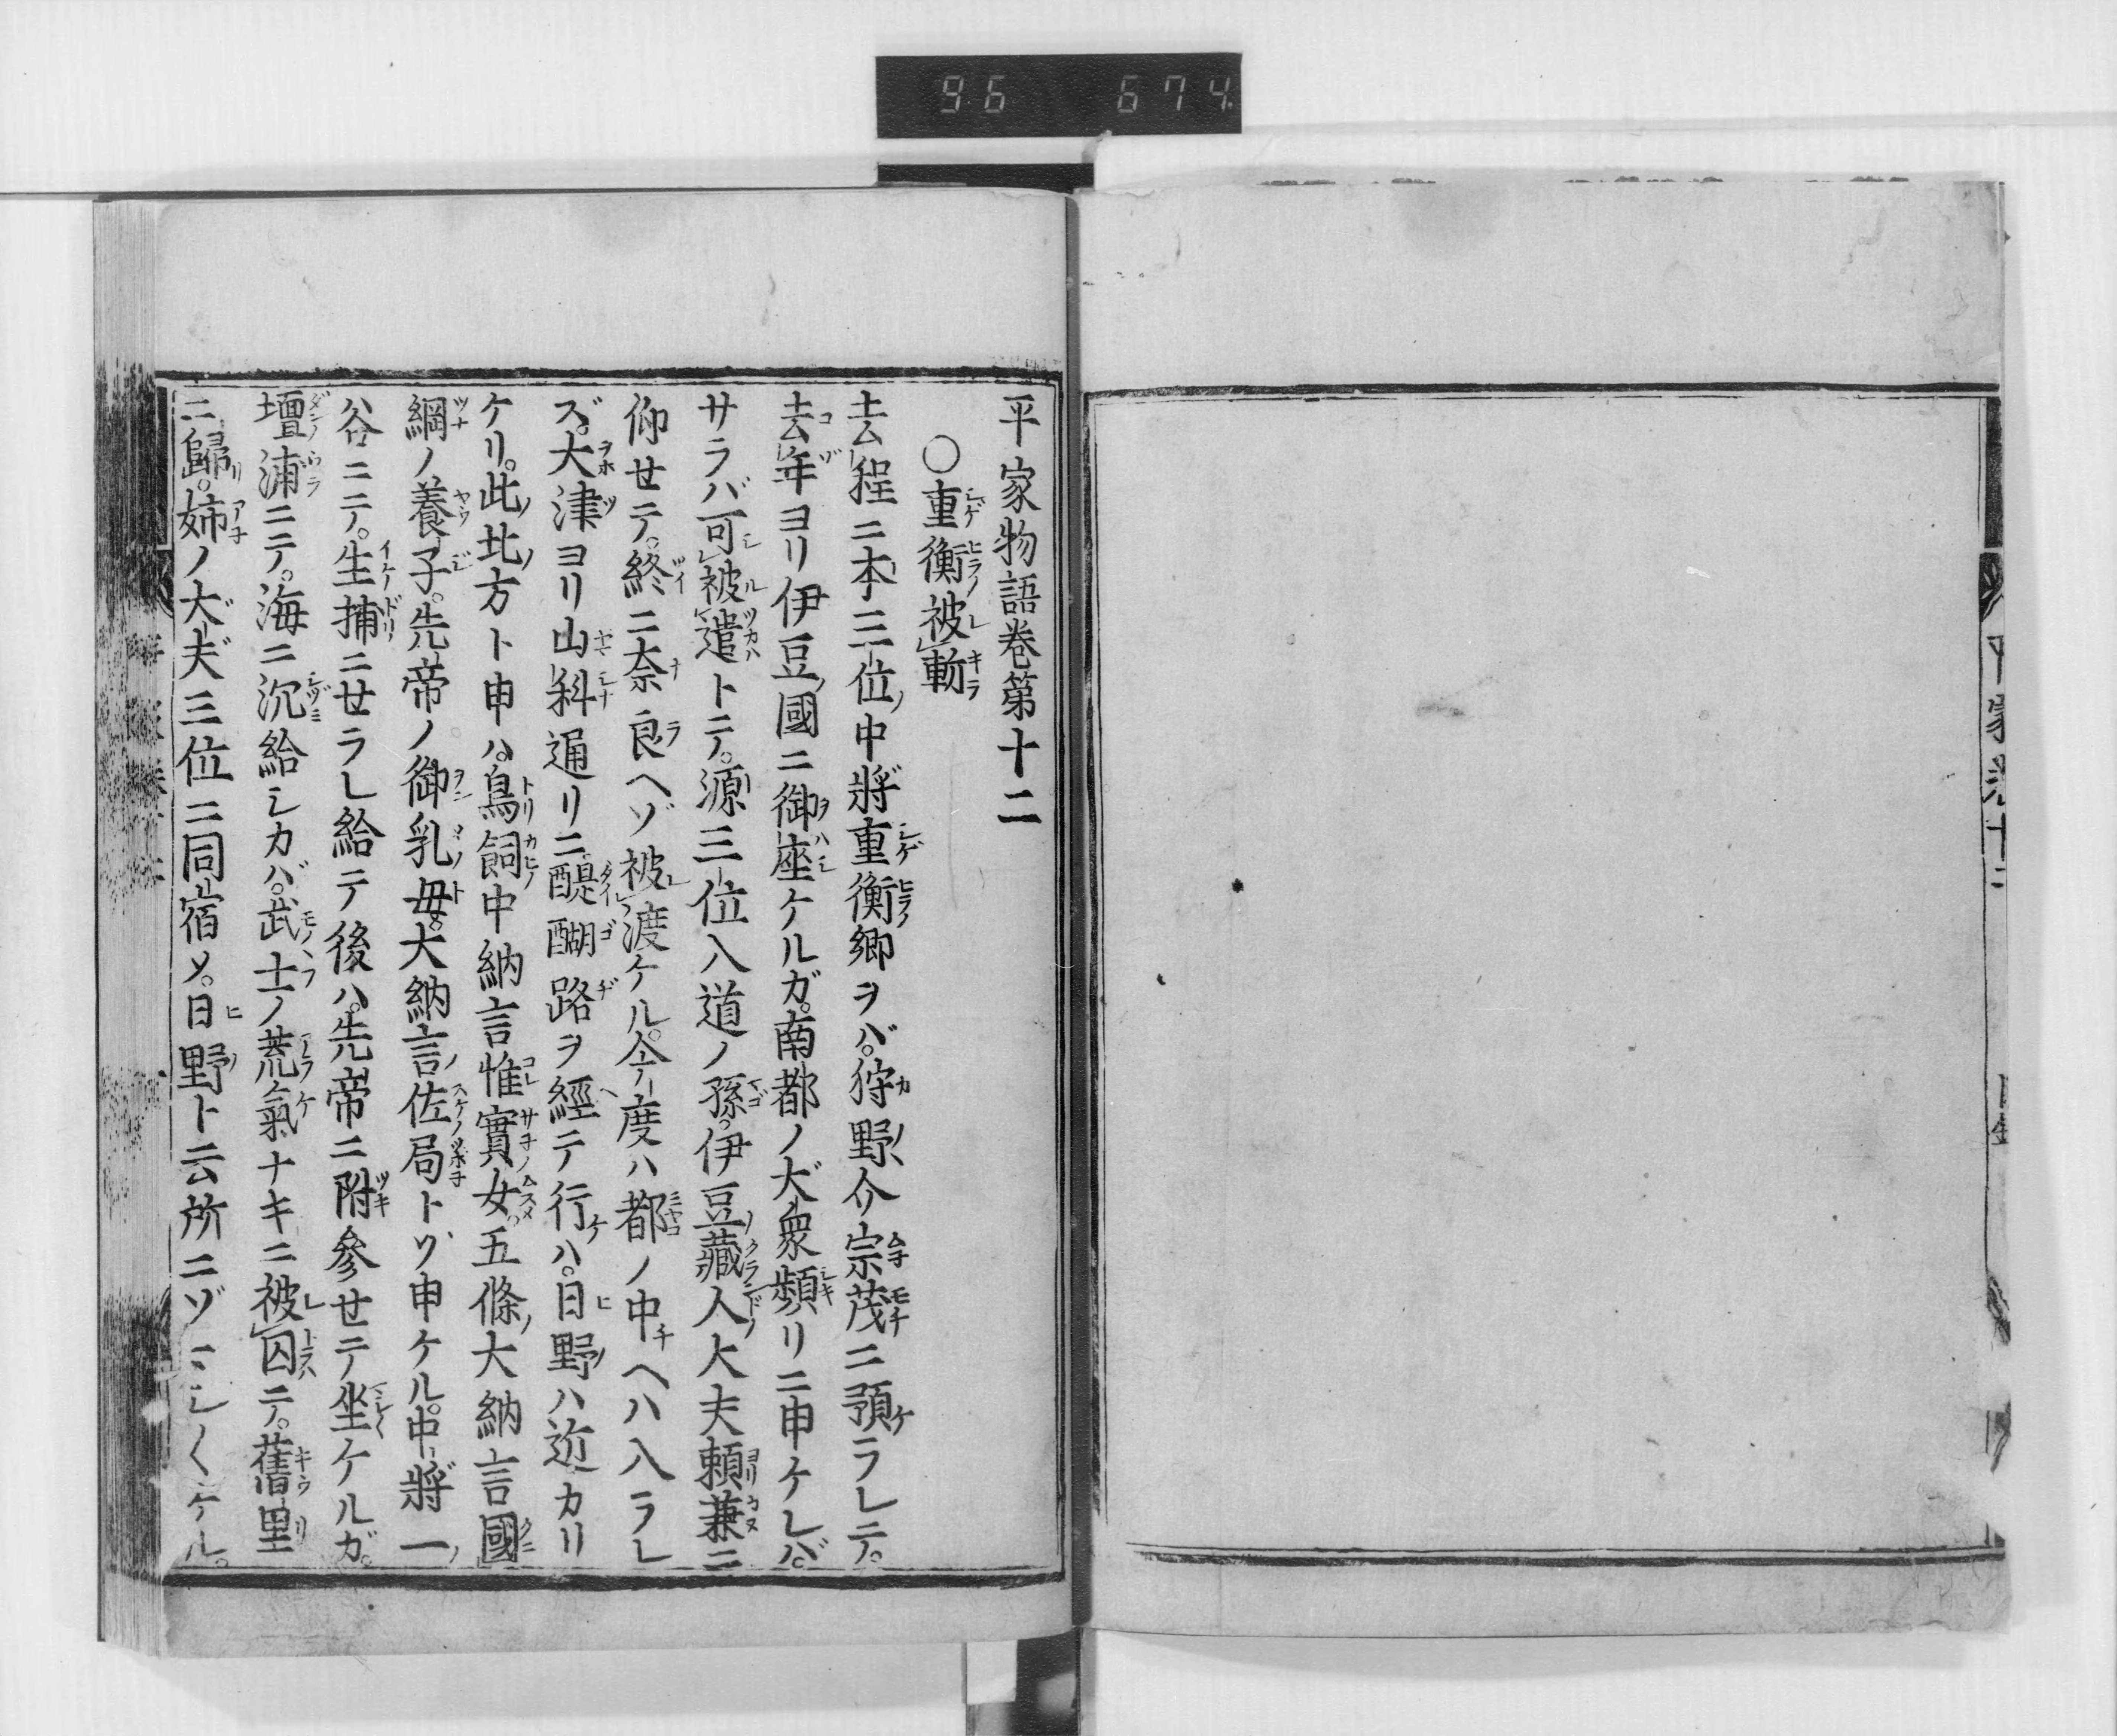 96 674
平家物語巻第十二
○重衡被斬
去程ニ本三位中將重衡卿ヲバ。狩野介宗茂ニ預ラレテ。
去年ヨリ伊豆國ニ御座ケルガ。南都ノ大衆頻リニ申ケレバ。
サラバ可被遣トテ。源三位入道ノ孫。伊豆藏人大夫頼兼ニ
仰セテ。終ニ奈良ヘゾ被渡ケル。今度ハ都ノ中ヘハ入ラレ
ズ。大津ヨリ山科通リニ。醍醐路ヲ經テ行ハ。日野ハ近カリ
ケリ。此北方ト申ハ。鳥飼中納言惟實女。五條大納言國
綱ノ養子。先帝ノ御乳母。大納言佐局トゾ申ケル。中將一
谷ニテ。生捕ニセラレ給テ後ハ。先帝ニ附參セテ坐ケルガ。
壇浦ニテ。海ニ沉給シカバ。武士ノ荒氣ナキニ被囚テ。舊里
ニ歸。姉ノ大夫三位ニ同宿メ。日野ト云所ニゾ
ケル。